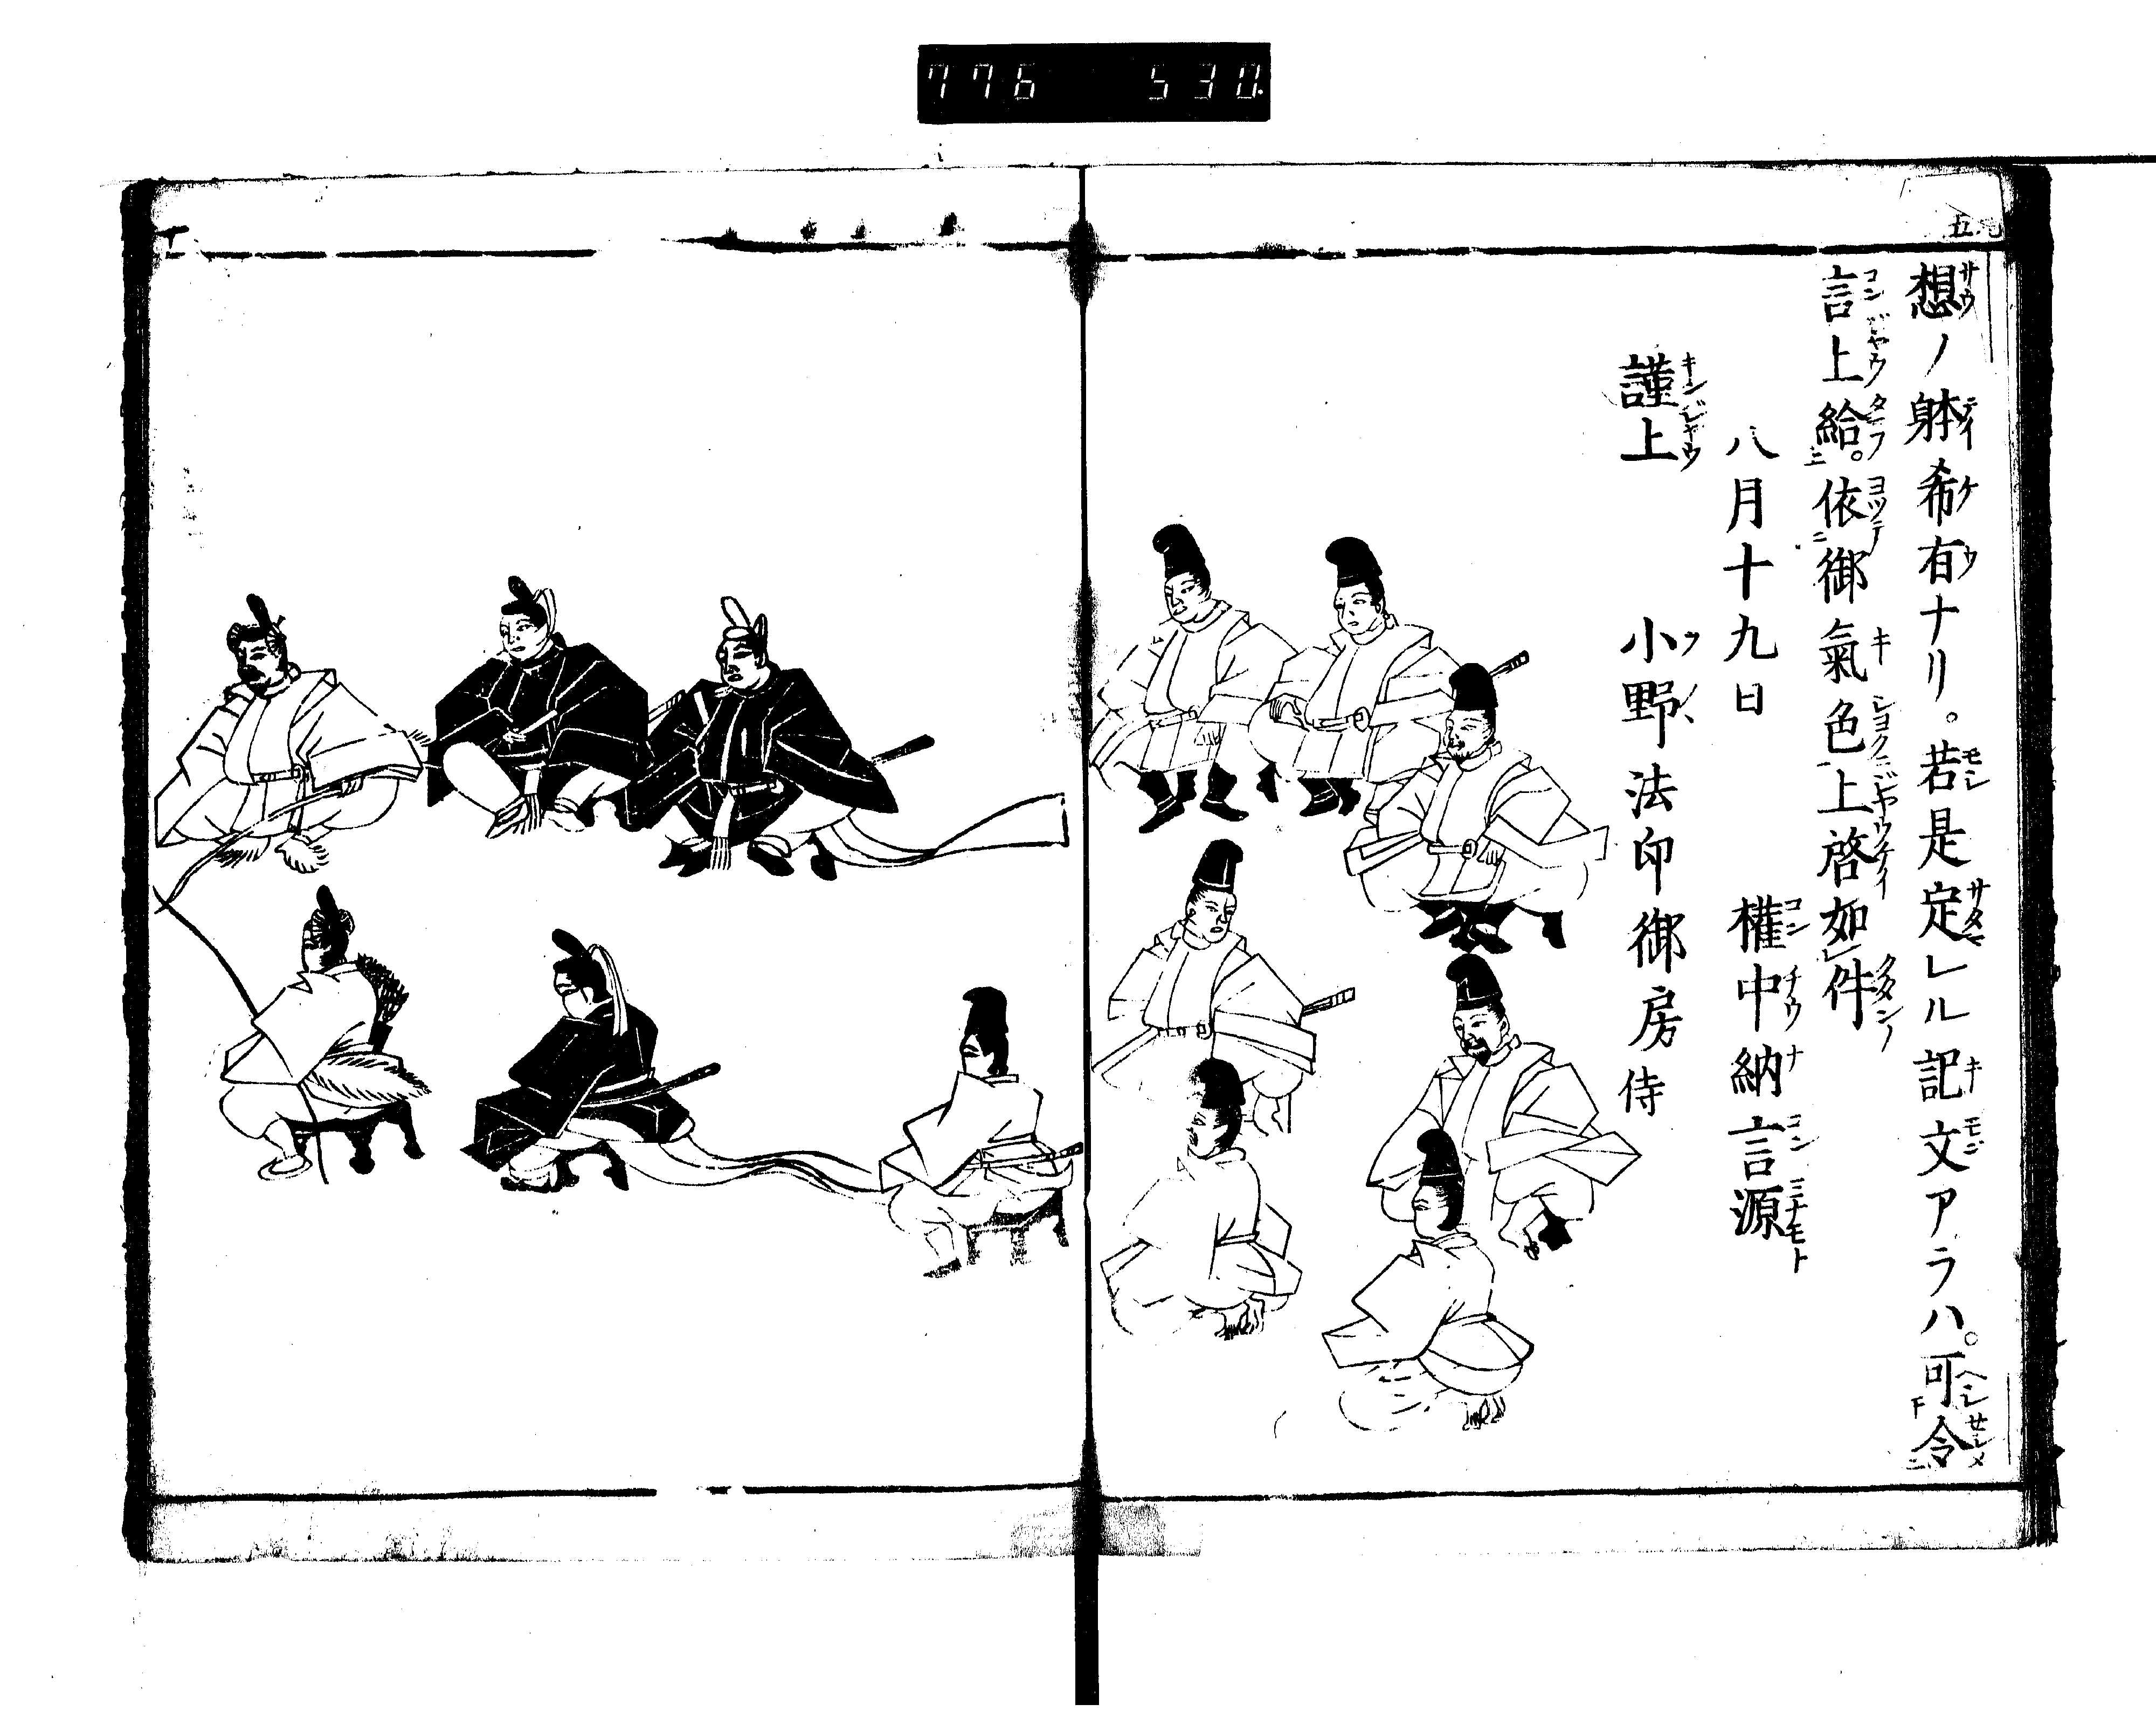 776 530.
五
想ノ躰希有ナリ。若是定レル記文アラハ。可令
言上給。依御氣色上啓如件
八月十九日 權中納言源
謹上 小野法印御房侍